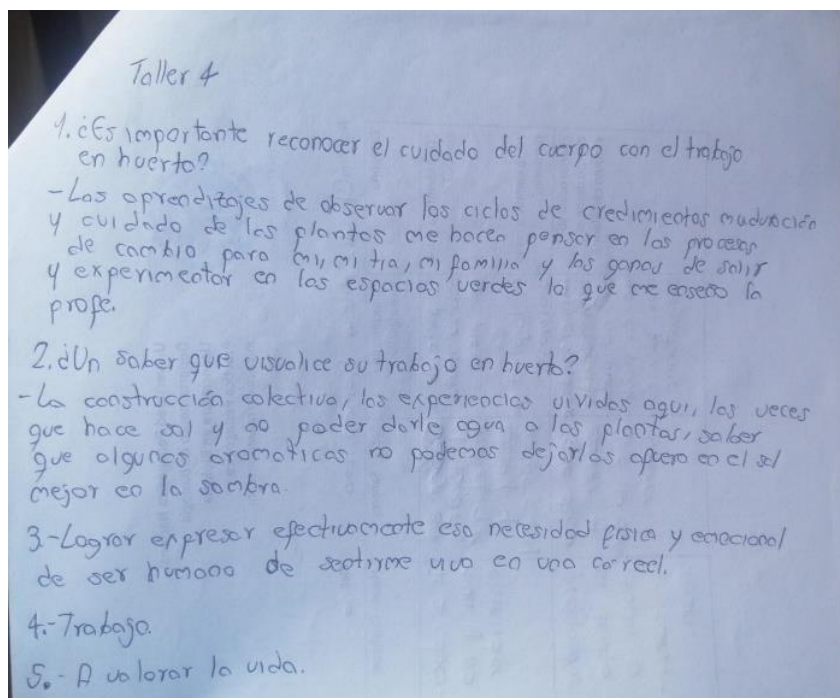 Taller 4
1. ¿Es importante reconocer el cuidado del cuerpo con el trabajo
en huerto?
-Los aprendizajes de observar los ciclos de credimientos maduración
y cuidado de las plantas me hacen penser en los procesos
de cambio para mi, mi tia, mi familia y las ganas de salir
y experimentar en los espacios verdes lo que me enseño la
profe.
2. ¿Un saber que visualice su trabajo en huerto?
-La construcción colectiva, las experiencias vividas aqui, las veces
que hace sol y no poder darle agua a las plantas, saber
que algunas aromaticas no podemos dejarlas afuera en el sol
mejor en la sombra.
3-Lograr expresar efectivamente esa necesidad fisica y emocional
de ser humano de sentirme vivo en una carcel.
4.-Trabajo.
5.- A valorar la vida.